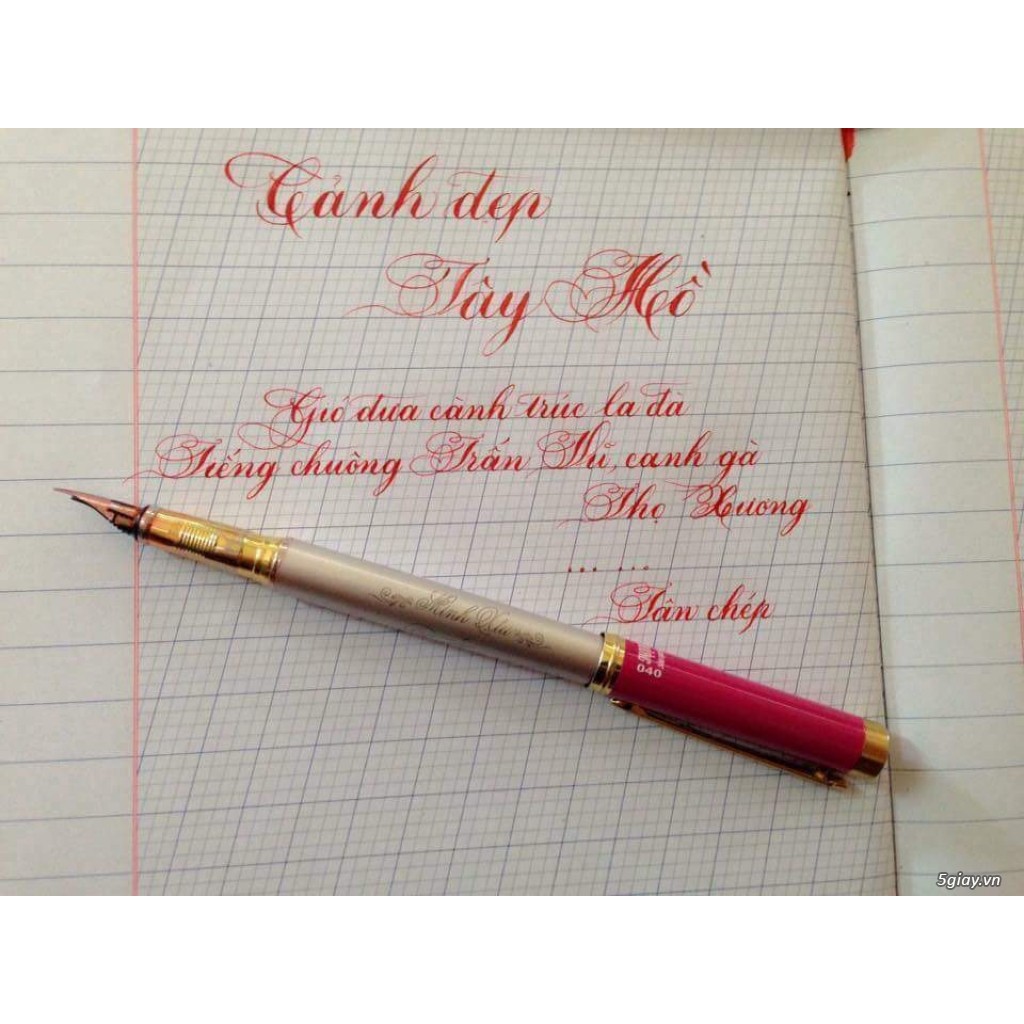 Cảnh đẹp
Tây Hồ
Gió đưa cành trúc la đà
Tiếng chuông Trấn Vũ, canh gà
Thọ Xương
... ...
Tân chép
040
5giay.vn